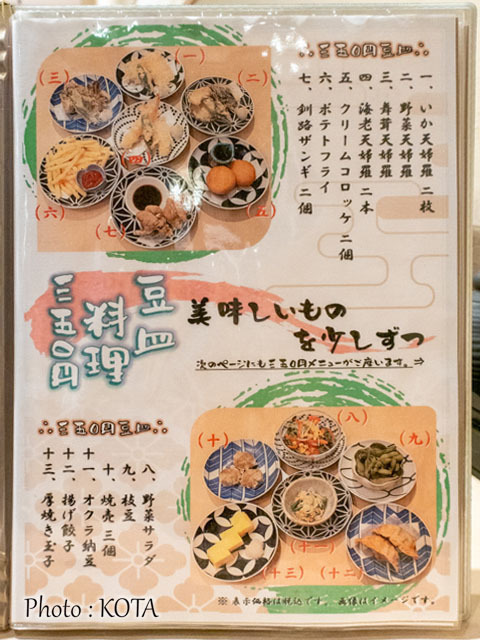 ∴三五0円豆皿∴
一、いか天婦羅 二枚
二、野菜天婦羅
三、舞茸天婦羅
四、海老天婦羅 二本
五、クリームコロッケ 二個
六、ポテトフライ
七、釧路ザンギ 二個
(一)
(二)
(三)
(四)
(五)
(六)
(七)
豆皿
料理
三五〇円
美味しいもの
を少しずつ
次のページにも三五0円メニューがございます。⇒
∴三五0円豆皿∴
八、野菜サラダ
九、枝豆
十、焼売 三個
十一、オクラ納豆
十二、揚げ餃子
十三、厚焼き玉子
(八)
(九)
(十)
(十一)
(十二)
(十三)
※ 表示価格は税込です。 画像はイメージです。
Photo : KOTA